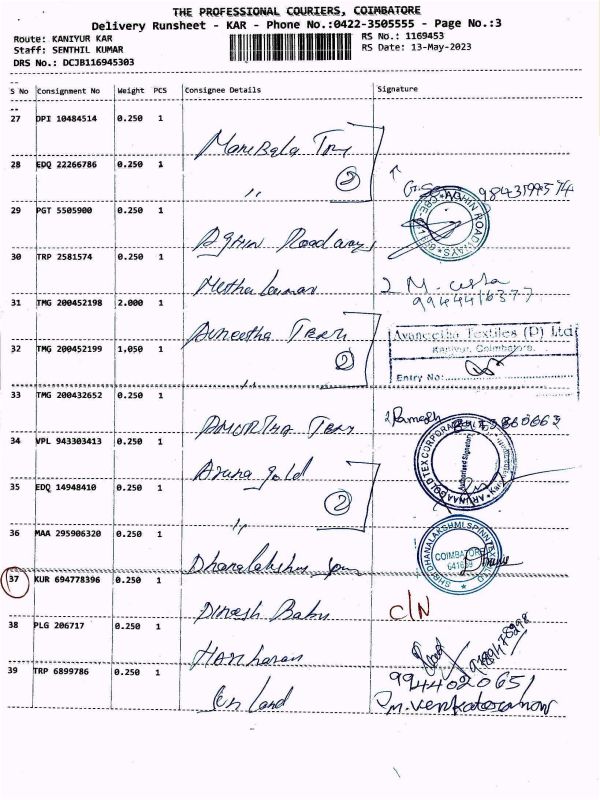 THE PROFESSIONAL COURIERS, COIMBATORE
Delivery Runsheet - KAR - Phone No.:0422-3505555 - Page No.:3
Route: KANIYUR KAR RS No.: 1169453
Staff: SENTHIL KUMAR RS Date: 13-May-2023
DRS No.: DCJB116945303
S No Consignment No Weight PCS Consignee Details Signature
27 DPI 10484514 0.250 1
Manibala Tex
28 EDQ 22266786 0.250 1
,, 2
29 PGT 5505900 0.250 1
Roadways
30 TRP 2581574 0.250 1
2 M.
9944416377
31 TMG 200452198 2.000 1
Tex
32 TMG 200452199 1.050 1
,, 2
Avaneetha Textiles (P) Ltd
Kaniyur, Coimbatore.
Entry No:
33 TMG 200432652 0.250 1
Ramesh
34 VPL 943303413 0.250 1
Aruna gold
Authorised Signatory
35 EDQ 14948410 0.250 1
,, 2
36 MAA 295906320 0.250 1
Dhanalakshmi
COIMBATORE
37 KUR 694778396 0.250 1
Dinesh Babu C/N
38 PLG 206717 0.250 1
Hariharan
39 TRP 6899786 0.250 1
9944020651